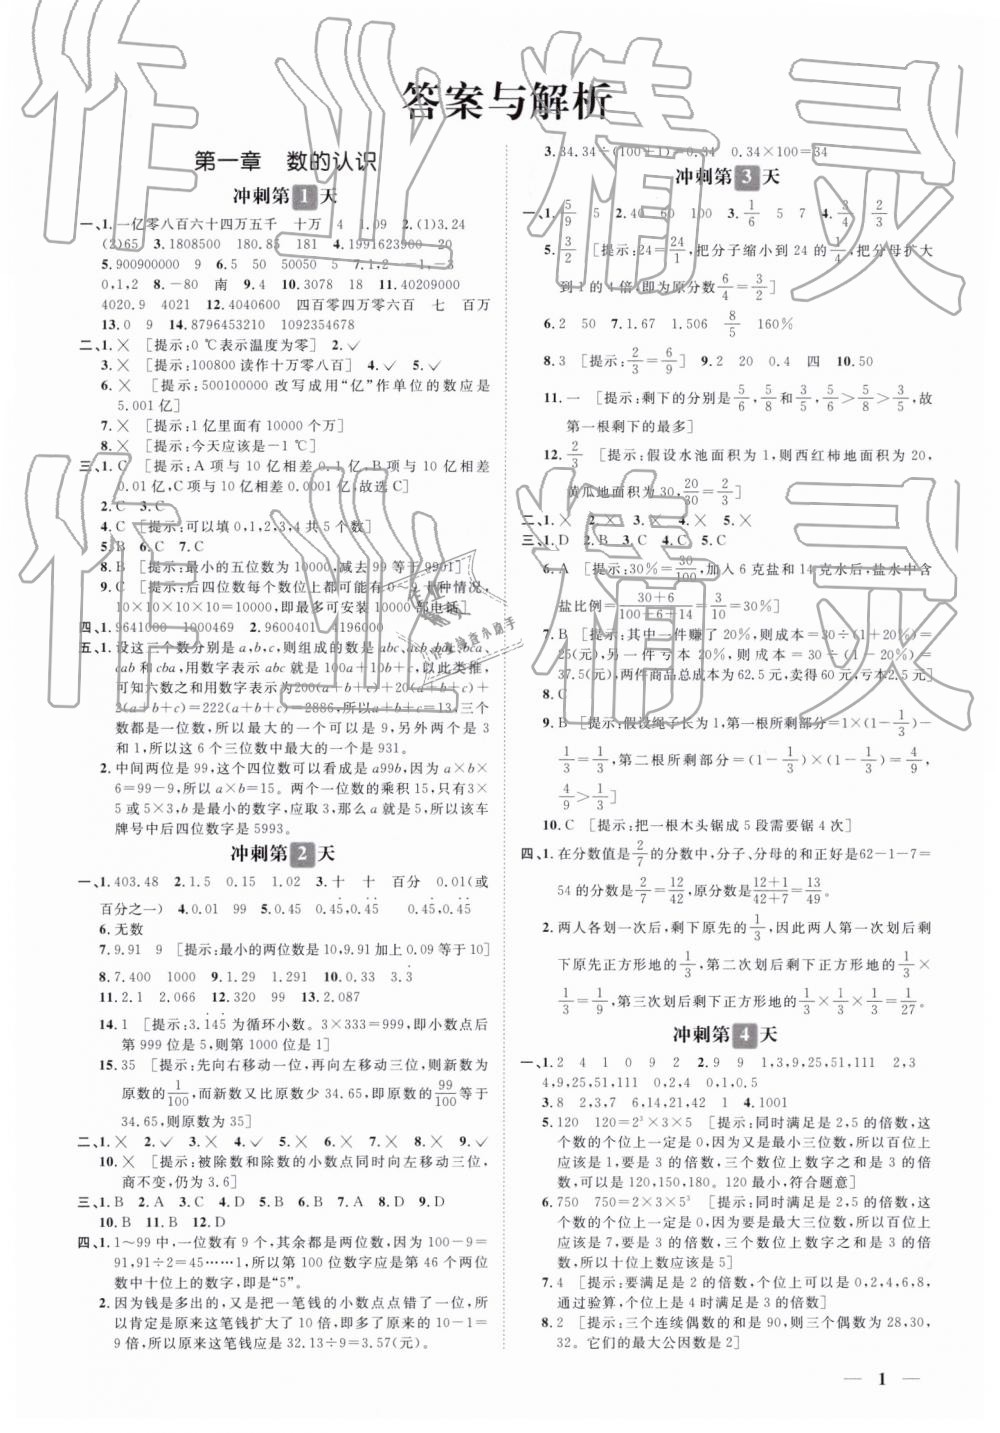 答案与解析
第一章　数的认识
冲刺第1天
一、1.一亿零八百六十四万五千　十万　4　1.09　2.(1)3.24
(2)65　3.1808500　180.85　181　4.1991623900　20
5.900900000　9　6.5　50　50050　5　7.1,2　-1,-3
0,1,2　8.-80　南　9.4　10.3078　18　11.40209000
4020.9　4021　12.4040600　四百零四万零六百　七　百万
13.0　9　14.8796453210　1092354678
二、1.×　[提示:0 ℃表示温度为零]　2.✓
3.×　[提示:100800 读作十万零八百]　4.✓　5.✓
6.×　[提示:500100000 改写成用“亿”作单位的数应是
5.001亿]
7.×　[提示:1亿里面有10000个万]
8.×　[提示:今天应该是-1 ℃]
三、1.C　[提示:A项与10亿相差0.1亿,B项与10亿相差
0.01亿,C项与10亿相差0.0001亿,故选C]
2.C　3.C
4.C　[提示:可以填0,1,2,3,4共5个数]
5.B　6.C　7.C
8.B　[提示:最小的五位数为10000,减去99等于9901]
9.C　[提示:后四位数每个数位上都可能有0～9十种情况,
10×10×10×10=10000,即最多可安装10000部电话]
四、1.9641000　1000469　2.9600401　4196000
五、1.设这三个数分别是a,b,c,则组成的数是abc,acb,bac,bca,
cab和cba,用数字表示abc就是100a+10b+c,以此类推,
可知六数之和用数字表示为200(a+b+c)+20(a+b+c)+
2(a+b+c)=222(a+b+c)=2886,所以a+b+c=13,三个
数都是一位数,所以最大的一个可以是9,另外两个是3
和1,所以这6个三位数中最大的一个是931。
2.中间两位是99,这个四位数可以看成是a99b,因为a×b×
6=99-9,所以a×b=15。两个一位数的乘积15,只有3×
5或5×3,b是最小的数字,应取3,那么a就是5,所以该车
牌号中后四位数字是5993。
冲刺第2天
一、1.403.48　2.1.5　0.15　1.02　3.十　十　百分　0.01(或
百分之一)　4.0.01　99　5.0.45　0.4̇5̇,0.45̇　0.45̇,0.4̇5̇
6.无数
7.9.91　9　[提示:最小的两位数是10,9.91加上0.09等于10]
8.7.400　1000　9.1.29　1.291　10.0.33　3.3̇
11.2.1　2.066　12.320　99　13.2.087
14.1　[提示:3.1̇45̇为循环小数。3×333=999,即小数点后
第999位是5,则第1000位是1]
15.35　[提示:先向右移动一位,再向左移动三位,则新数为
原数的1/100,而新数又比原数少34.65,即原数的99/100等于
34.65,则原数为35]
二、1.×　2.✓　3.×　4.✓　5.×　6.×　7.×　8.×　9.✓
10.×　[提示:被除数和除数的小数点同时向左移动三位,
商不变,仍为3.6]
三、1.B　2.A　3.C　4.D　5.B　6.A　7.B　8.D　9.D
10.B　11.B　12.D
四、1.1～99中,一位数有9个,其余都是两位数,因为100-9=
91,91÷2=45……1,所以第100位数字应是第46个两位
数中十位上的数字,即是“5”。
2.因为钱是多出的,又是把一笔钱的小数点点错了一位,所
以肯定是原来这笔钱扩大了10倍,即多了原来的10-1=
9倍,所以原来这笔钱应是32.13÷9=3.57(元)。
3.34.34÷(100+1)=0.34　0.34×100=34
冲刺第3天
一、1.5/9　5　2.40　60　100　3.1/6　5　7　4.3/4　2/3
5.3/2　[提示:24=24/1,把分子缩小到24的1/4,把分母扩大
到1的4倍,即为原分数6/4=3/2]
6.2　50　7.1.67　1.506　8/5　160%
8.3　[提示:2/3=6/9]　9.2　20　0.4　四　10.50
11.一　[提示:剩下的分别是5/6,5/8和3/5,5/6>5/8>3/5,故
第一根剩下的最多]
12.2/3　[提示:假设水池面积为1,则西红柿地面积为20,
黄瓜地面积为30,20/30=2/3]
二、1.×　2.×　3.×　4.×　5.×
三、1.D　2.B　3.C　4.C　5.C
6.A　[提示:30%=30/100,加入6克盐和14克水后,盐水中含
盐比例=(30+6)/(100+6+14)=3/10=30%]
7.B　[提示:其中一件赚了20%,原成本为:30÷(1+20%)=
25(元),另一件亏本20%,原成本为:30÷(1-20%)=
37.5(元),两件商品总成本为62.5元,卖得60元,亏本2.5元]
8.C
9.B　[提示:假设绳子长为1,第一根所剩部分=1×(1-1/3)-
1/3=1/3,第二根所剩部分=(1-1/3)×(1-1/3)=4/9,
4/9>1/3]
10.C　[提示:把一根木头锯成5段需要锯4次]
四、1.在分数值是2/7的分数中,分子、分母的和正好是62-1-7=
54的分数是2/7=12/42,原分数是(12+1)/(42+7)=13/49。
2.两人各划一次后,剩下原先的1/3,因此两人第一次划后剩
下原先正方形地的1/3,第二次划后剩下正方形地的1/3×
1/3=1/9,第三次划后剩下正方形地的1/3×1/3×1/3=1/27。
冲刺第4天
一、1.2　4　1　0　9　2　2.9　9　1,3,9,25,51,111　2,3
4,9,25,51,111　0,2,4　0,1,0.5
3.8　2,3,7　6,14,21,42　1　4.1001
5.120　120=2³×3×5　[提示:同时满足是2,5的倍数,这
个数的个位上一定是0,因为又是最小三位数,所以百位上
应该是1,要是3的倍数,三个数位上数字之和是3的倍
数,可以是120,150,180。120最小,符合题意]
6.750　750=2×3×5³　[提示:同时满足是2,5的倍数,这
个数的个位上一定是0,因为要是最大三位数,所以百位上
应该是7,要是3的倍数,三个数位上数字之和是3的倍
数,所以十位上数应该是5]
7.4　[提示:要满足是2的倍数,个位上可以是0,2,4,6,8,
通过验算,个位上是4时满足是3的倍数]
8.2　[提示:三个连续偶数的和是90,则三个数为28,30,
32。它们的最大公因数是2]
1
作业精灵
作业精灵